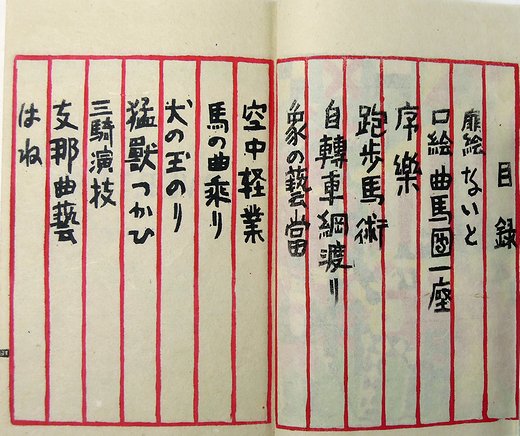 目録
扉絵ないと
口絵曲馬團一座
序樂
跑歩馬術
自轉車綱渡り
象の藝當
空中軽業
馬の曲乘り
犬の玉のり
猛獸つかひ
三騎演技
支那曲藝
はね